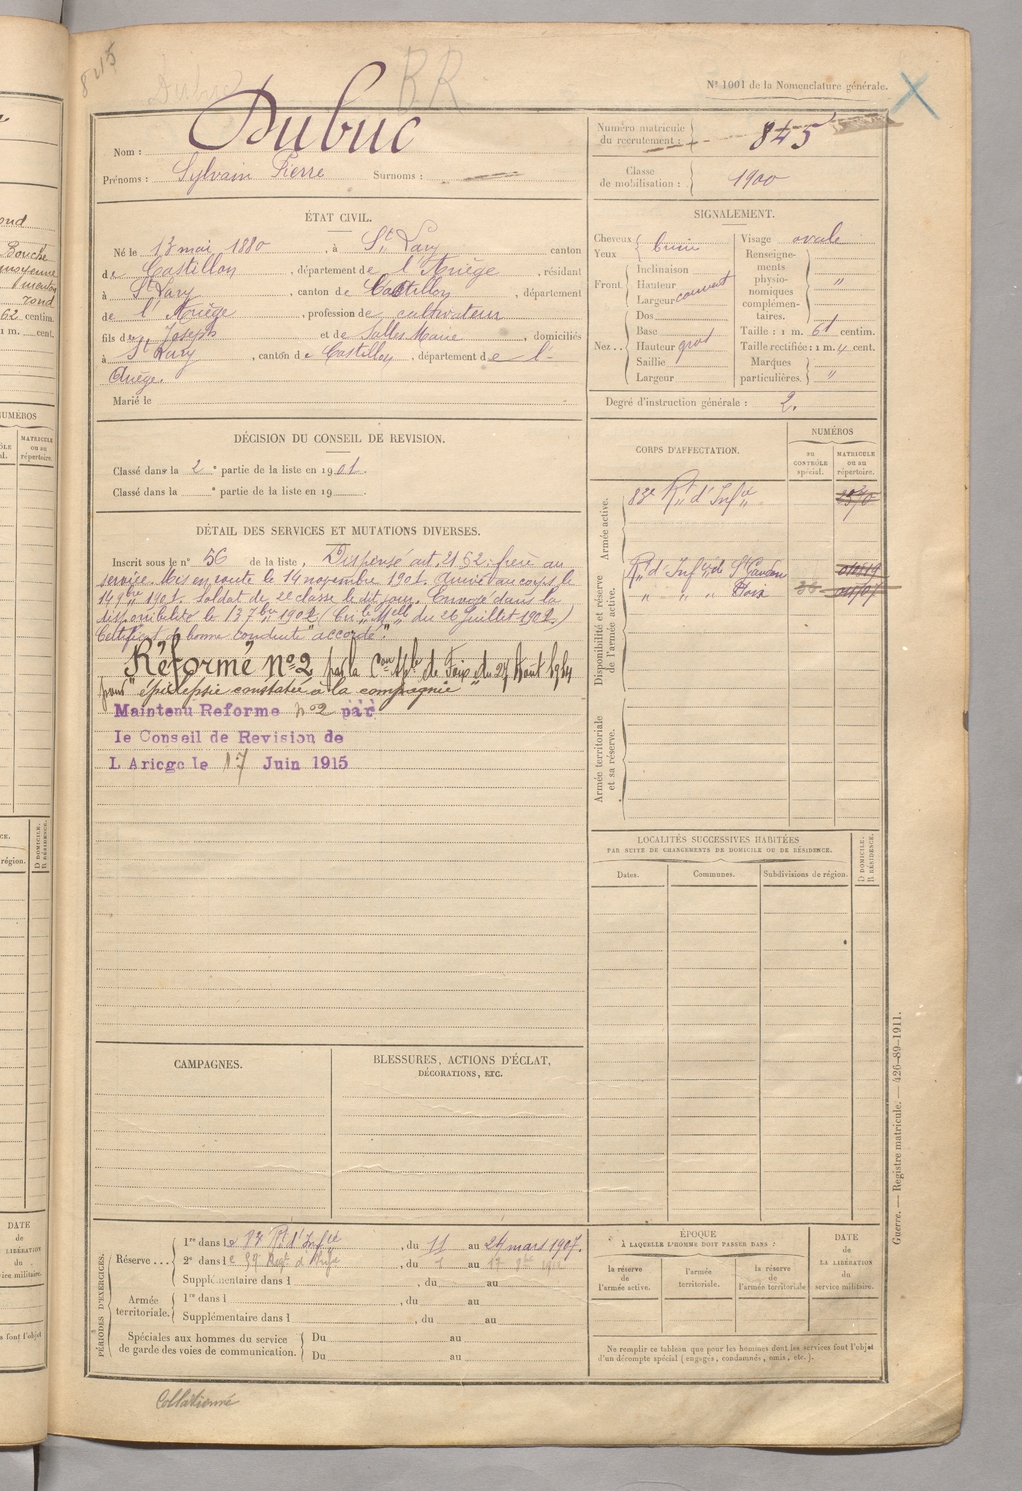 845
Dubuc
BR
N° 1001 de la Nomenclature générale.
Nom : Dubuc
Prénoms : Sylvain Pierre Surnoms :
Numéro matricule du recrutement : 845
Classe de mobilisation : 1900
ÉTAT CIVIL.
Né le 13 mai 1880, à St Lary canton
de Castillon, département de l'Ariège, résidant
à St Lary, canton de Castillon, département
de l'Ariège, profession de cultivateur
fils de Joseph et de Salles Marie, domiciliés
à St Lary, canton de Castillon, département de l'-
Ariège.
Marié le
SIGNALEMENT.
Cheveux
Yeux
Front
Inclinaison
Hauteur
Largeur couvert
Nez
Dos
Base
Hauteur gros
Saillie
Largeur
Visage ovale
Renseignements physionomiques complémentaires. "
Taille : 1 m. 61 centim.
Taille rectifiée : 1 m. " cent.
Marques particulières. "
Degré d'instruction générale : 2.
DÉCISION DU CONSEIL DE REVISION.
Classé dans la 2e partie de la liste en 1901.
Classé dans la e partie de la liste en 19
DÉTAIL DES SERVICES ET MUTATIONS DIVERSES.
Inscrit sous le n° 56 de la liste, Dispensé art. 21 § 2: frère au
service. Mis en route le 14 novembre 1901. Arrivé au corps le
14 9bre 1901. Soldat de 2e classe le dit jour. Envoyé dans la
disponibilité le 13 7bre 1902 (Cre Melle du 26 juillet 1902)
Certificat de bonne conduite "accordé".
Réformé n° 2 par la Con Sple de Foix du 27 Août 1914
pour "épilepsie constatée à la compagnie"
Maintenu Reforme n° 2 par
le Conseil de Revision de
L Ariege le 17 Juin 1915
CORPS D'AFFECTATION.
NUMÉROS
AU CONTRÔLE spécial.
MATRICULE OU AU répertoire.
Armée active.
83e Rt d'Infie
Disponibilité et réserve de l'armée active.
Rt d'Infie de St Gaudens
" " " Foix
Armée territoriale et sa réserve.
LOCALITÉS SUCCESSIVES HABITÉES
PAR SUITE DE CHANGEMENTS DE DOMICILE OU DE RÉSIDENCE.
Dates.
Communes.
Subdivisions de région.
D DOMICILE.
R RÉSIDENCE.
CAMPAGNES.
BLESSURES, ACTIONS D'ÉCLAT,
DÉCORATIONS, ETC.
PÉRIODES D'EXERCICES.
Réserve...
1re dans le Rt d'Infie, du 11 au 24 mars 1907.
2e dans le Regt d'Infie, du 1 au 17
Supplémentaire dans l , du au
Armée territoriale.
1re dans l , du au
Supplémentaire dans l , du au
Spéciales aux hommes du service
de garde des voies de communication.
Du au
Du au
ÉPOQUE
À LAQUELLE L'HOMME DOIT PASSER DANS :
la réserve de l'armée active.
l'armée territoriale.
la réserve de l'armée territoriale
DATE
de
LA LIBÉRATION
du
service militaire.
Ne remplir ce tableau que pour les hommes dont les services font l'objet
d'un décompte spécial (engagés, condamnés, omis, etc.).
Guerre. — Registre matricule. — 426-89-1911.
Collationné
ond
Bouche
moyenne
menton
rond
62 centim.
1 m. cent.
NUMÉROS
MATRICULE
OU AU
répertoire.
région.
D DOMICILE.
R RÉSIDENCE.
DATE
de
LA LIBÉRATION
du
service militaire.
s font l'objet